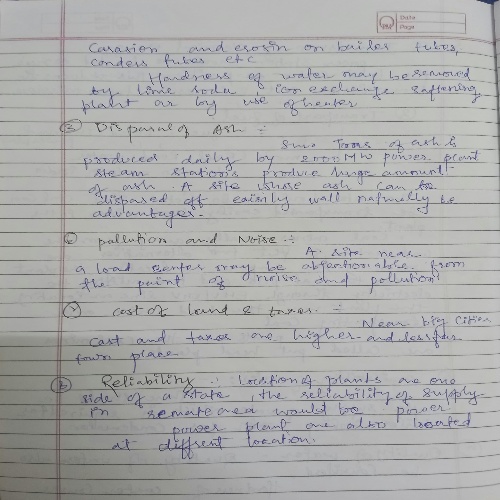 Date
Page
Carasion and erosin on boiler tubes,
conders tubes etc
Hardness of water may be removed
by lime soda, ion exchange softening
plant or by use of heater
Disposal of Ash :-
Tons of ash is
produced daily by 2000MW power plant
steam stations produce huge amount
of ash. A site whose ash can be
disposed off easily will naturally be
advantages.
pollution and Noise :-
A. site near
a load center may be objectionable from
the point of noise and pollution
cost of land & taxes :-
Near big cities
cast and taxes are higher and less far
town place
Reliability :- Location of plants are one
side of a state, the reliability of supply
in remote area would be power.
power plant are also located
at diffrent location.